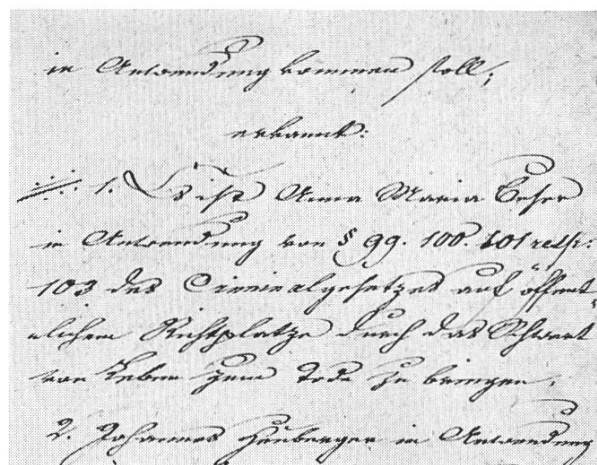 in Anwendung kommen soll,
erkannt:
1. Es ist Anna Maria
in Anwendung von § 99. 100. 101 resp:
103 des Criminalgesetzes auf öffent-
lichem Richtplatze durch das Schwert
vom Leben zum Tode zu bringen.
2. Johannes in Anwendung